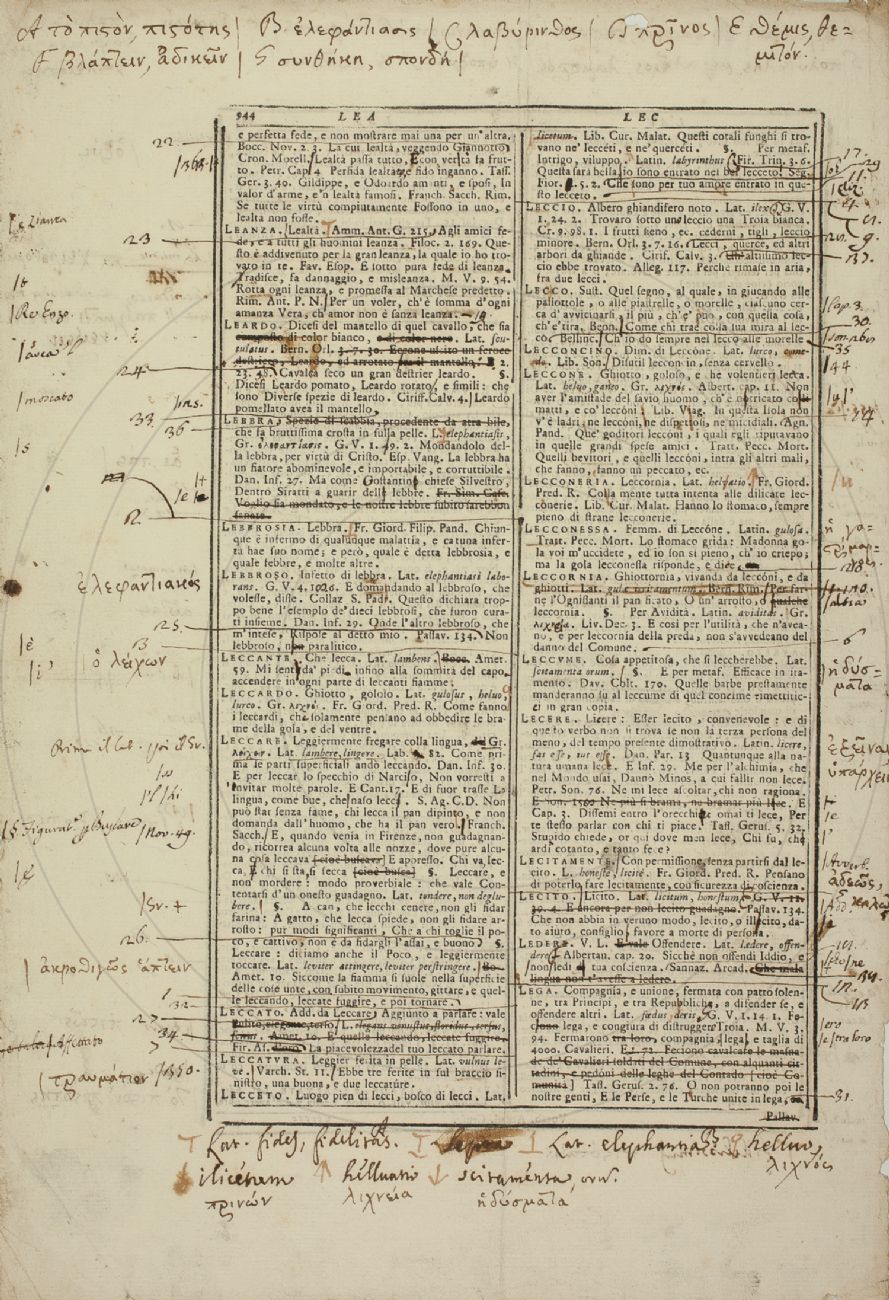 Α τὸ πιςὸν, πιςότης | Β. ἐλεφάντιασις | C λαβύρινθος | D πρῖνος | E θέμις, θε-
μιτόν.
F βλάπτειν, ἀδικεῖν | G συνθήκη, σπονδή |
944 LEA LEC
e perfetta fede, e non mostrare mai una per un'altra.
Bocc. Nov. 2 3. La cui lealtà, veggendo Giannotto
Cron. Morell. Lealtà passa tutto, E con verità fa frut-
to. Petr. Cap. 4 Perfida lealtate, e fido inganno. Tass.
Ger. 3. 40. Gildippe, e Odoardo amanti, e sposi, In
valor d'arme, e 'n lealtà famosi. Franch. Sacch. Rim.
Se tutte le virtù compiutamente Fossono in uno, e
lealtà non fosse.
LEANZA. Lealtà. Amm. Ant. G. 215. Agli amici fe-
de, e a tutti gli huomini leanza. Filoc. 2. 169. Que-
sto è addivenuto per la gran leanza, la quale io ho tro-
vato in te. Fav. Esop. E sotto pura fede di leanza
Tradisce, fa dannaggio, e misleanza. M. V. 9. 54.
Rotta ogni leanza, e promessa al Marchese predetto.
Rim. Ant. P. N. Per un voler, ch'è somma d'ogni
amanza Vera, ch'amor non è sanza leanza.
LEARDO. Dicesi del mantello di quel cavallo, che sia
composto di color bianco, e di color nero. Lat. scu-
tulatus. Bern. Orl. 3. 7. 30. Eccone uscito un feroce
destriero, Leardo, ed arrotato fra il mantello. 2.
23. 48. Cavalca seco un gran destrier leardo. §.
Dicesi Leardo pomato, Leardo rotato, e simili: che
sono Diverse spezie di Leardo. Ciriff. Calv. 4. Leardo
pomellato avea il mantello.
LEBBRA. Spezie di scabbia, procedente da atra bile,
che fa bruttissima crosta in sulla pelle. L. elephantiasis,
Gr. ἐλεφαντίασις. G. V. 1. 49. 2. Mondandolo del-
la lebbra, per virtù di Cristo. Esp. Vang. La lebbra ha
un fiatore abominevole, e importabile, e corruttibile.
Dan. Inf. 27. Ma come Gostantino chiese Silvestro,
Dentro Siratti a guarir delle lebbre. Fr. Sim. Casc.
Voglio sia mondato, e le nostre lebbre subito sarebbon
sanate.
LEBBROSIA. Lebbra. Fr. Giord. Filip. Pand. Chiun-
que è infermo di qualunque malattia, e catuna infer-
tà hae suo nome; e però, quale è detta lebbrosia, e
quale febbre, e molte altre.
LEBBROSO. Infetto di lebbra. Lat. elephantiasi labo-
rans. G. V. 4. 1026. E domandando al lebbroso, che
volesse, disse. Collaz S. Pad. Questo dichiara trop-
po bene l'esemplo de' dieci lebbrosi, che furon cura-
ti insieme. Dan. Inf. 29. Onde l'altro lebbroso, che
m'intese, Rispose al detto mio. Passav. 134. Non
lebbroso, non paralitico.
LECCANTE. Che lecca. Lat. lambens. Bocc. Amet.
59. Mi sentì da' piedi, infino alla sommità del capo,
accendere in ogni parte di leccanti fiamme.
LECCARDO. Ghiotto, goloso. Lat. gulosus, helvo,
lurco. Gr. λιχνός. Fr. Giord. Pred. R. Come fanno
i leccardi, che solamente pensano ad obbedire le bra-
me della gola, e del ventre.
LECCARE. Leggiermente fregare colla lingua, Gr.
λείχειν. Lat. lambere, lingere. Lab. 82. Come pri-
ma le parti superficiali andò leccando. Dan. Inf. 30.
E per leccar lo specchio di Narciso, Non vorresti a
'nvitar molte parole. E Cant. 17. E di fuor trasse La
lingua, come bue, che 'l naso lecci. S. Ag. C. D. Non
può star senza fame, chi lecca il pan dipinto, e non
domanda dall'huomo, che ha il pan vero. Franch.
Sacch. E, quando venia in Firenze, non guadagnan-
do, ricorrea alcuna volta alle nozze, dove pure alcu-
na cosa leccava [cioè buscava]. E appresso. Chi va, lec-
ca, E chi si sta, si secca [cioè busca] §. Leccare, e
non mordere: modo proverbiale: che vale Con-
tentarsi d'un onesto guadagno. Lat. tondere, non deglu-
bere. §. A can, che lecchi cenere, non gli fidar
farina: A gatto, che lecca spiede, non gli fidare ar-
rosto: pur modi significanti, Che a chi toglie il po-
co, e cattivo, non è da fidargli l'assai, e buono §.
Leccare: diciamo anche il Poco, e leggiermente
toccare. Lat. leviter attingere, leviter perstringere. Bo.
Amet. 10. Siccome la fiamma si suole nella superficie
delle cose unte, con subito movimento, gittare, e quel-
le leccando, leccate fuggire, e poi tornare.
LECCATO. Add. da Leccare; Aggiunto a parlare: vale
Forbito, elegante, terso. L. elegans venustus, floridus, tersus,
Amet. 10. E' quelle leccando, leccate fuggire.
Fir. As. La piacevolezza del tuo leccato parlare.
LECCATVRA. Leggier ferita in pelle. Lat. vulnus le-
ve. Varch. St. 11. Ebbe tre ferite in sul braccio si-
nistro, una buona, e due leccature.
LECCETO. Luogo pien di lecci, bosco di lecci. Lat.
ilicetum. Lib. Cur. Malat. Questi cotali funghi si tro-
vano ne' leccéti, e ne' querceti. §. Per metaf.
Intrigo, viluppo. Latin. labyrinthus Fir. Trin. 3. 6.
Questa sarà bella, io sono entrato nel bel lecceto! Seg.
Fior. 5. 2. Che sono per tuo amore entrato in que-
sto lecceto.
LECCIO. Albero ghiandifero noto. Lat. ilex. G. V.
1. 24. 2. Trovaro sotto uno leccio una Troia bianca.
Cr. 9. 98. 1. I frutti sieno, ec. cederni, tigli, leccio
minore. Bern. Orl. 3. 7. 16. Lecci, querce, ed altri
arbori da ghiande. Cirif. Calv. 3. Un altissimo lec-
cio ebbe trovato. Alleg. 117. Perchè rimase in aria,
fra due lecci.
LECCO. Sust. Quel segno, al quale, in giucando alle
pallottole, o alle piastrelle, o morelle, ciascuno cerca
d'avvicinarsi, il più, ch'e' può, con quella cosa,
ch'e' tira. Benn. Come chi trae colla sua mira al lec-
co, Bellinc. Ch'io do sempre nel lecco alle morelle
LECCONCINO. Dim. di Leccóne. Lat. lurco,
Lib. Son. Disutil leccon in, senza cervello.
LECCONE. Ghiotto, goloso, e che volentieri lecca.
Lat. heluo, ganeo. Gr. λιχνός. Albert. cap. 11. Non
aver l'amistade del savio huomo, ch'è nutricato co'
matti, e co' lecconi. Lib. Viag. In questa Isola non
v'è ladri, ne lecconi, ne dispettosi, ne micidiali. Agn.
Pand. Que' goditori lecconi, i quali egli riputavano
in quelle grandi spese amici. Tratt. Pecc. Mort.
Quelli bevitori, e quelli lecconi, intra gli altri mali,
che fanno, fanno un peccato, ec.
LECCONERIA. Leccornia. Lat. helvatio. Fr. Giord.
Pred. R. Colla mente tutta intenta alle dilicate lec-
conerie. Lib. Cur. Malat. Hanno lo stomaco, sempre
pieno di strane lecconerie.
LECCONESSA. Femm. di Leccóne. Latin. gulosa.
Tratt. Pecc. Mort. Lo stomaco grida: Madonna go-
la voi m'uccidete, ed io son sì pieno, ch'io criepo;
ma la gola lecconessa risponde, e dice
LECCORNIA. Ghiottornia, vivanda da lecconi, e da
ghiotti. Lat. gulæ irritamentum. Bern. Rim. Per far-
ne l'Ognissanti il pan ficato, O un' arrosto, o qualche
leccornia. §. Per Avidità. Latin. aviditas. Gr.
λιχνεία. Liv. Dec. 3. E così per l'utilità, che n'avea-
no, e per leccornia della preda, non s'avvedeano del
danno del Comune.
LECCVME. Cosa appetitosa, che si leccherebbe. Lat.
scitamenta orum. §. E per metaf. Efficace in ita-
mento. Dav. Cblt. 170. Quelle barbe prestamente
manderanno su al leccume di quel concime rimettitic-
ci in gran copia.
LECERE. Licere: Esser lecito, convenevole: e di
questo verbo non si trova se non la terza persona del
meno, del tempo presente dimostrativo. Latin. licere,
fas esse, ius esse. Dan. Par. 13 Quantunque alla na-
tura umana lece. E Inf. 29. Me per l'alchimia, che
nel Mondo usai, Dannò Minos, a cui fallir non lece.
Petr. Son. 76. Ne mi lece ascoltar, chi non ragiona.
E Son. 1560 Ne più si brama, ne bramar più lece. E
Cap. 3. Dissemi entro l'orecchie: omai ti lece, Per
te stesso parlar con chi ti piace. Tass. Gerus. 5. 32.
Stupido chiede, or qui dove men lece, Chi fu, ch'
ardì cotanto, e tanto fece?
LECITAMENTE. Con permissione, senza partirsi dal le-
cito. L. honeste, licite. Fr. Giord. Pred. R. Pensano
di poterlo fare lecitamente, con sicurezza di coscienza.
LECITO. Licito. Lat. licitum, honestum. G. V. 11.
39. 4. E ancora per non lecito guadagno. Passav. 134.
Che non abbia in veruno modo, lecito, o illecito, da-
to aiuto, consiglio, favore a morte di persona.
LEDERE. V. L. E vale Offendere. Lat. lædere, offen-
dere. Albertan. cap. 20. Sicchè non offendi Iddio, e
non ledi la tua coscienza. Sannaz. Arcad. Che mala
lingua non t'avesse a ledere.
LEGA. Compagnia, e unione, fermata con patto solen-
ne, tra Principi, e tra Repubbliche, a difender se, e
offendere altri. Lat. foedus, deris. G. V. 1. 14. 1. Fe-
ciono lega, e congiura di distruggere Troia. M. V. 3.
94. Fermarono tra loro, compagnia, e lega, e taglia di
4000. Cavalieri. E 1. 72. Feciono cavalcare le masna-
de de' Cavalieri soldati del Comune, con alquanti cit-
tadini, e pedóni delle leghe del Contado [cioè Co-
munità] Tass. Gerus. 2. 76. O non potranno poi le
nostre genti, E le Perse, e le Turche unite in lega,
Passav.
22.
23
24
33
36
ἐλεφαντιακός
25.
13
ὁ λείχων
26.
ἀκροθιγῶς ἅπτειν
32.
27
34.
τραυμάτιον
1350.
17.
29
11.
9.
37.
cap. 3.
30.
35
44
34
28
6
ἡδύσ-
ματα
ἔξεῖναι
ὑπάρχει
ἀδεῶς,
31.
Lat. fides, fidelitas. Lat. elephantia helluo,
λιχνός
ilicetum helluatio scitamenta, orum.
πρινών λιχνεία ἡδύσματα